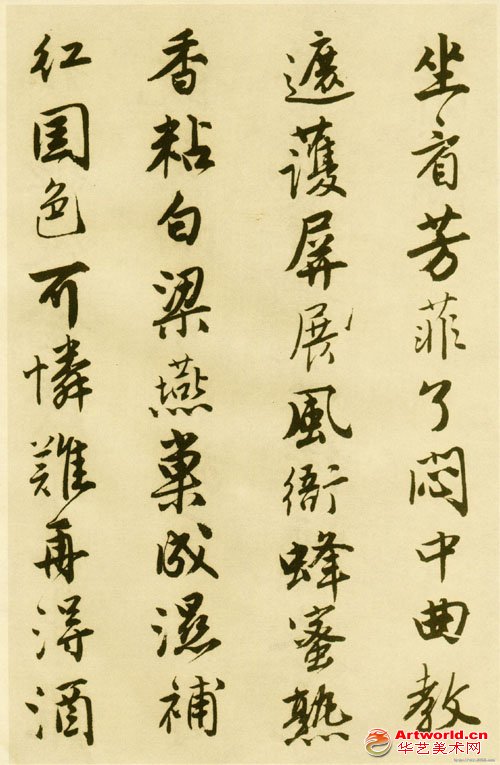 坐看芳菲了悶中曲教
遮護屏展風衙蜂蜜熟
香粘白梁燕巢成濕補
紅國色可憐難再得酒
Artworld.cn
华艺美术网